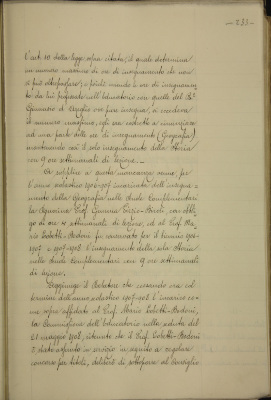 - 233 -
L'art. 10 della legge sopra citata, il quale determina
un numero massimo di ore di insegnamento che non
si può oltrepassare, e poichè unendo le ore di insegnamen
to da lui professate nell'Educatorio con quelle del R.º
Ginnasio di si eccedeva
il numero massimo, egli era costretto a rinunziare
ad una parte delle ore di insegnamento (Geografia)
mantenendo così il solo insegnamento della Storia
con 9 ore settimanali di lezione. -
Da supplire a questa mancanza venne, per
l'anno scolastico 1906-1907 incaricata dell'insegna-
mento della Geografia nelle scuole Complementari
la Signorina Prof. con obbli
go di ore settimanali di lezione, ed al Prof. Ma
rio fu conservato per il biennio 1906-
1907 e 1907-1908 l'insegnamento della sola Storia
nelle scuole Complementari con 9 ore settimanali
di lezione.
Soggiunge il Relatore che cessando coi
termini dell'anno scolastico 1907-1908 l'incarico co-
me sopra affidato al Prof. Mario
la Commissione dell'Educatorio nella seduta del
21 maggio 1908, ritenuto che il Prof.
è stato assunto in servizio in seguito a regolare
concorso per titoli, deliberò di sottoporre al Consiglio